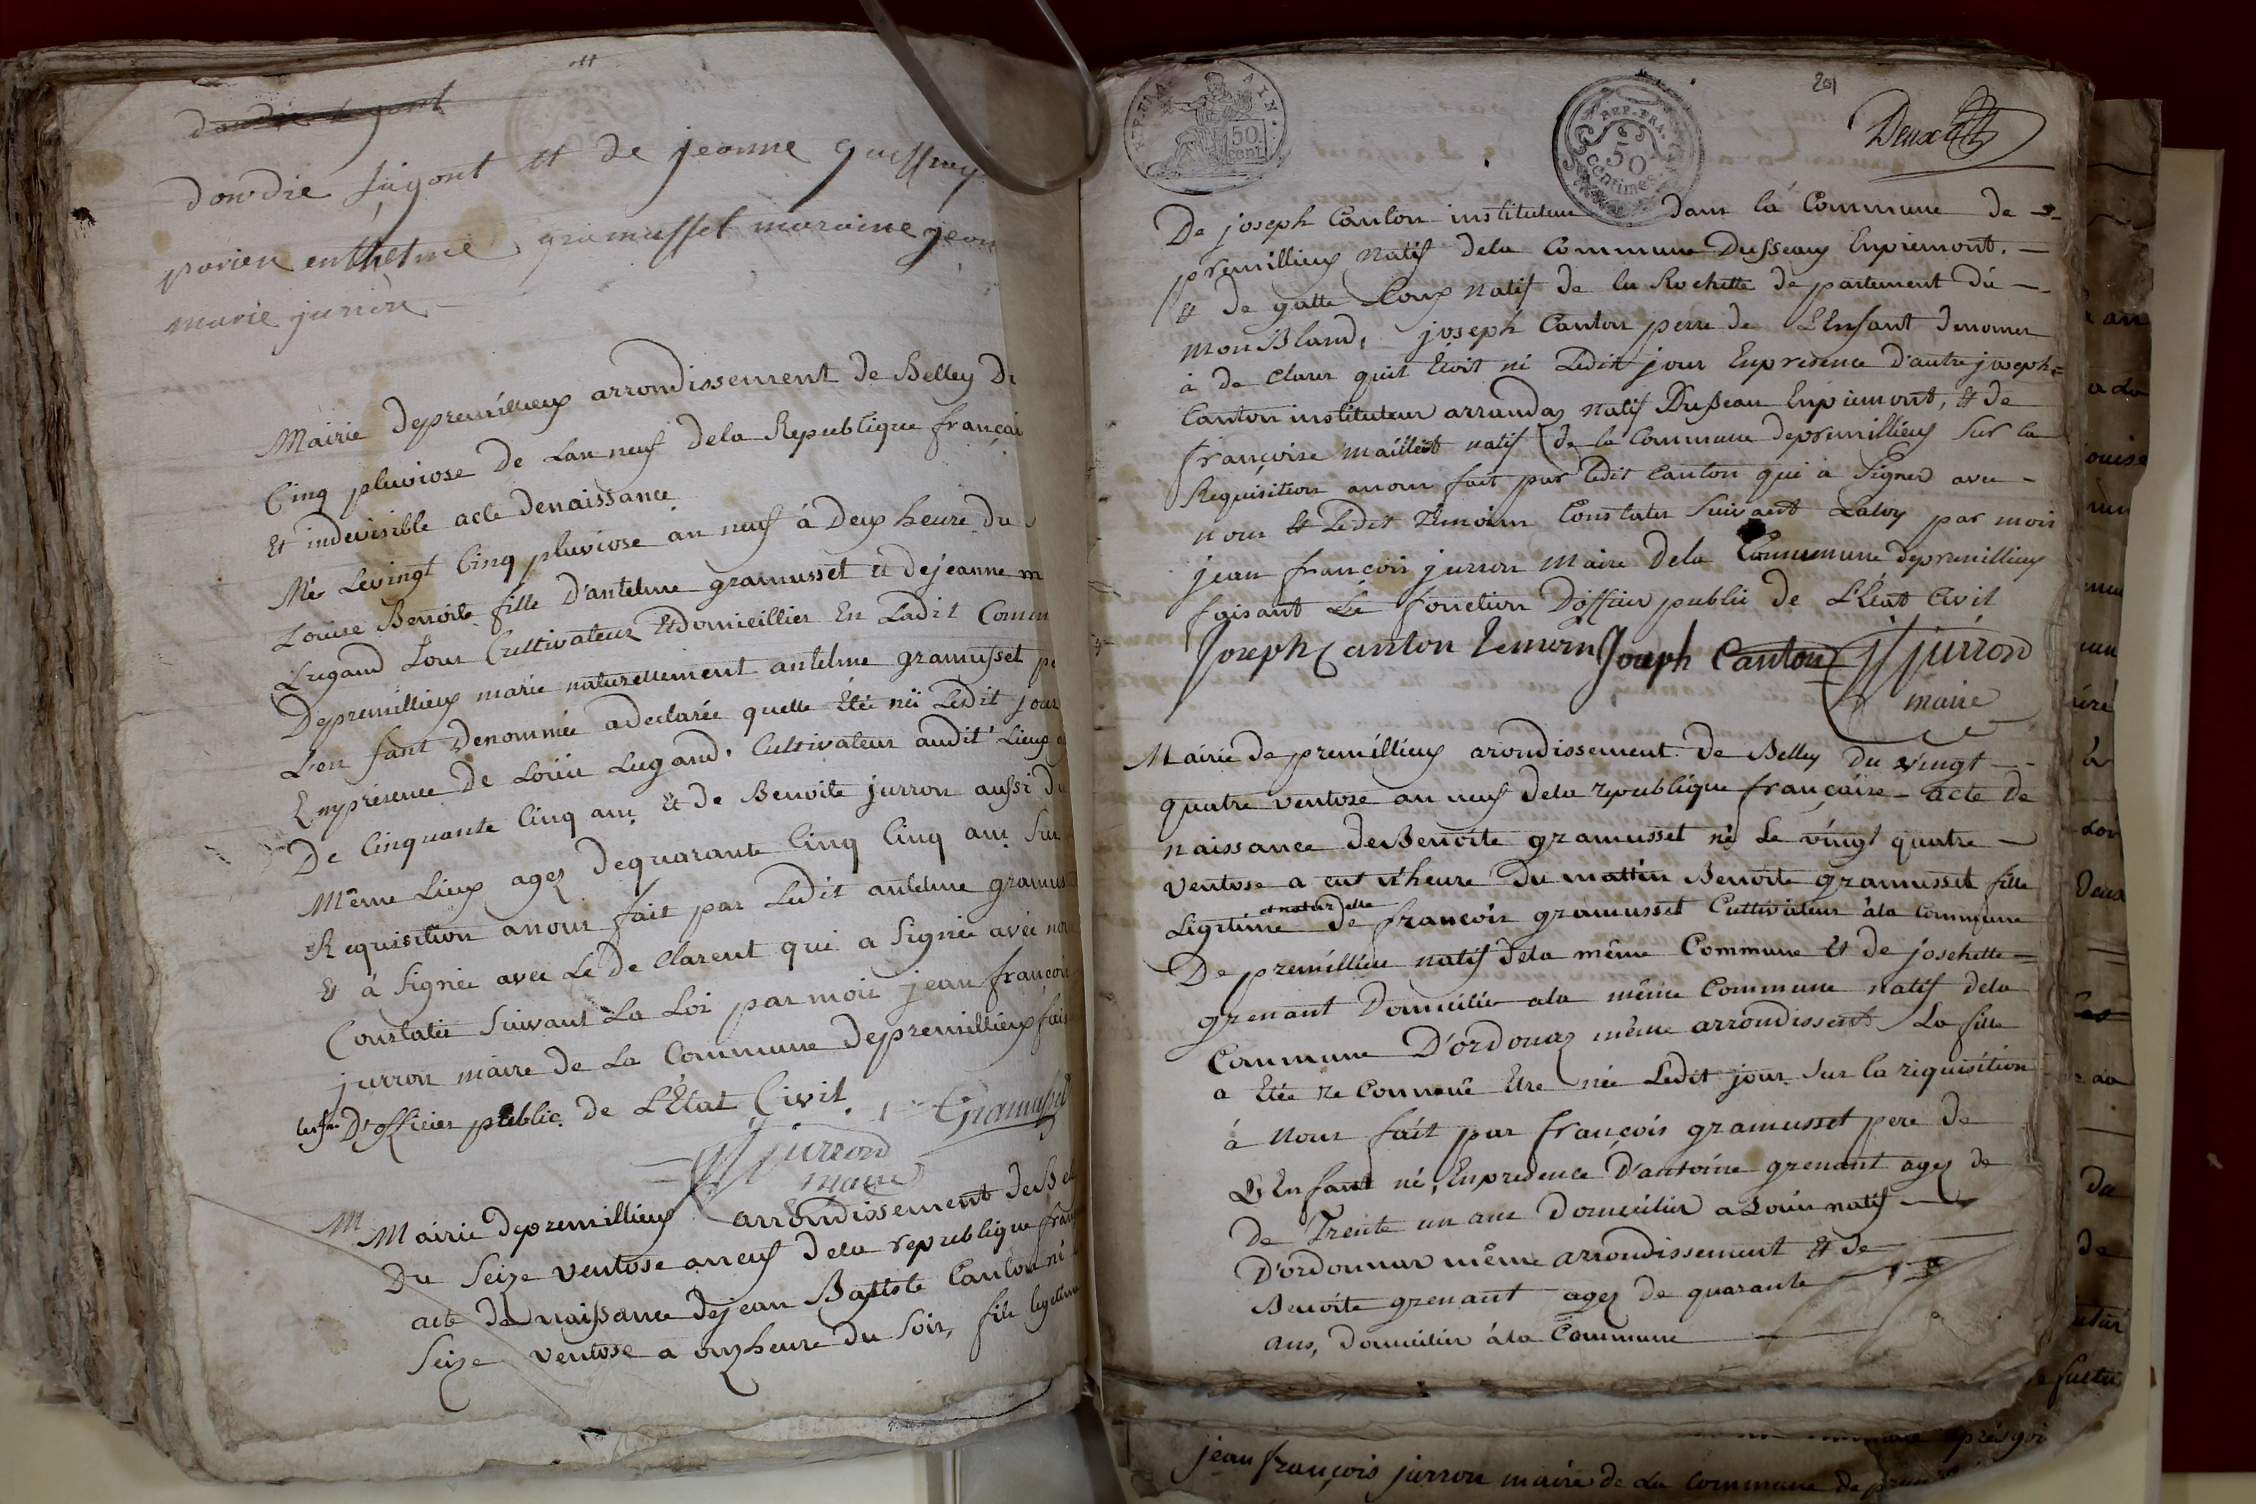 dondre fugont et de jeanne gueffrey
marie jurron
Mairie depremillieux arrondissement de Belley Du
Cinq pluviose de Lan neuf dela Republique françai
Et indevisible acte denaissance
Née Levingt Cinq pluviose an neuf à Deux heure du
Louise Benoite fille D'antelme gramusset et dejeanne m
Lugand Tour Cultivateur Et domicillier En Ladit Comm
Depremillieux marié naturellement antelme gramusset pe
L'en fant Denommée a declarée quelle Etée néé Ledit jour
Enprésence de Louis Lugand, Cultivateur audit Lieux
De Cinquante Cinq ans Et de Benoite jurron aussi Du
Même Lieux agez dequarante Cinq Cinq ans Sur
Requisition anous fait par Ledit antelme gramus
Et à Signée avec Le De Clarent qui a Signée avée nou
Constatée Suivant La Loi par moi jean françois
jurron maire de La Commune Depremillieux fais
D'officier public de L'Etat Civil
Gramusset
jf jurron
maire
M Mairie depremillieux arrondissement de Bel
Du Seize ventose anneuf dela republique fran
acte de naissance dejean Batiste Canton né
Seize ventose a onzheure du Soir, fils legitime
REP. FRA. AIN.
50 cent
REP. FRA.
50 centimes
201
De joseph Canton instituteur dans la Commune de
premillieux natif dela Commune Dusseaux Enpiemont,
Et de gatte Coux natif de la Rochette de partement du
mon Bland, joseph Canton perre de L'Enfant denomer
à de Clarer quil Etoit né Ledit jour Enpresence d'autre joseph
Canton instituteur arrandaz natif Dusseau Enpiemont, Et de
françoise maillet natif de la Commune depremillieux Sur la
Requisition anous fait par Ledit Canton qui à Signer avec
nous Et Ledit temoins Constater Suivant Laloy par mois
jean françois jurron maire dela Commune depremillieux
faisant Le fonction D'officier public de L'Etat Civil
Joseph Canton temoin Joseph Canton jf jurron
maire
Mairie de premillieux arondissement de Belley du vingt
quatre ventose an neuf dela republique françaire acte de
naissance de Benoite gramusset né Le vingt quatre
ventose a eut n'heure Du mattin Benoite gramusset fille
et naturelle
Legitime de françois gramusset Cultivateur àla Commune
De premillieu natif dela même Commune Et de josehette
grenant Domicilié ala même Commune natif dela
Commune D'ordonaz même arrondissent La fille
a Etée re Connuë Etre née Ledit jour Sur la riquisition
à nous fait par françois gramusset pere de
L'Enfant né, Enpresence D'antoine grenant agez de
de Trente un ans Domicilier a Louin natif
D'ordonnas même arrondissement Et de
Benoite grenant agez de quarante
ans, Domicilier àla Commune
jean françois jurron maire de La Commune de prem